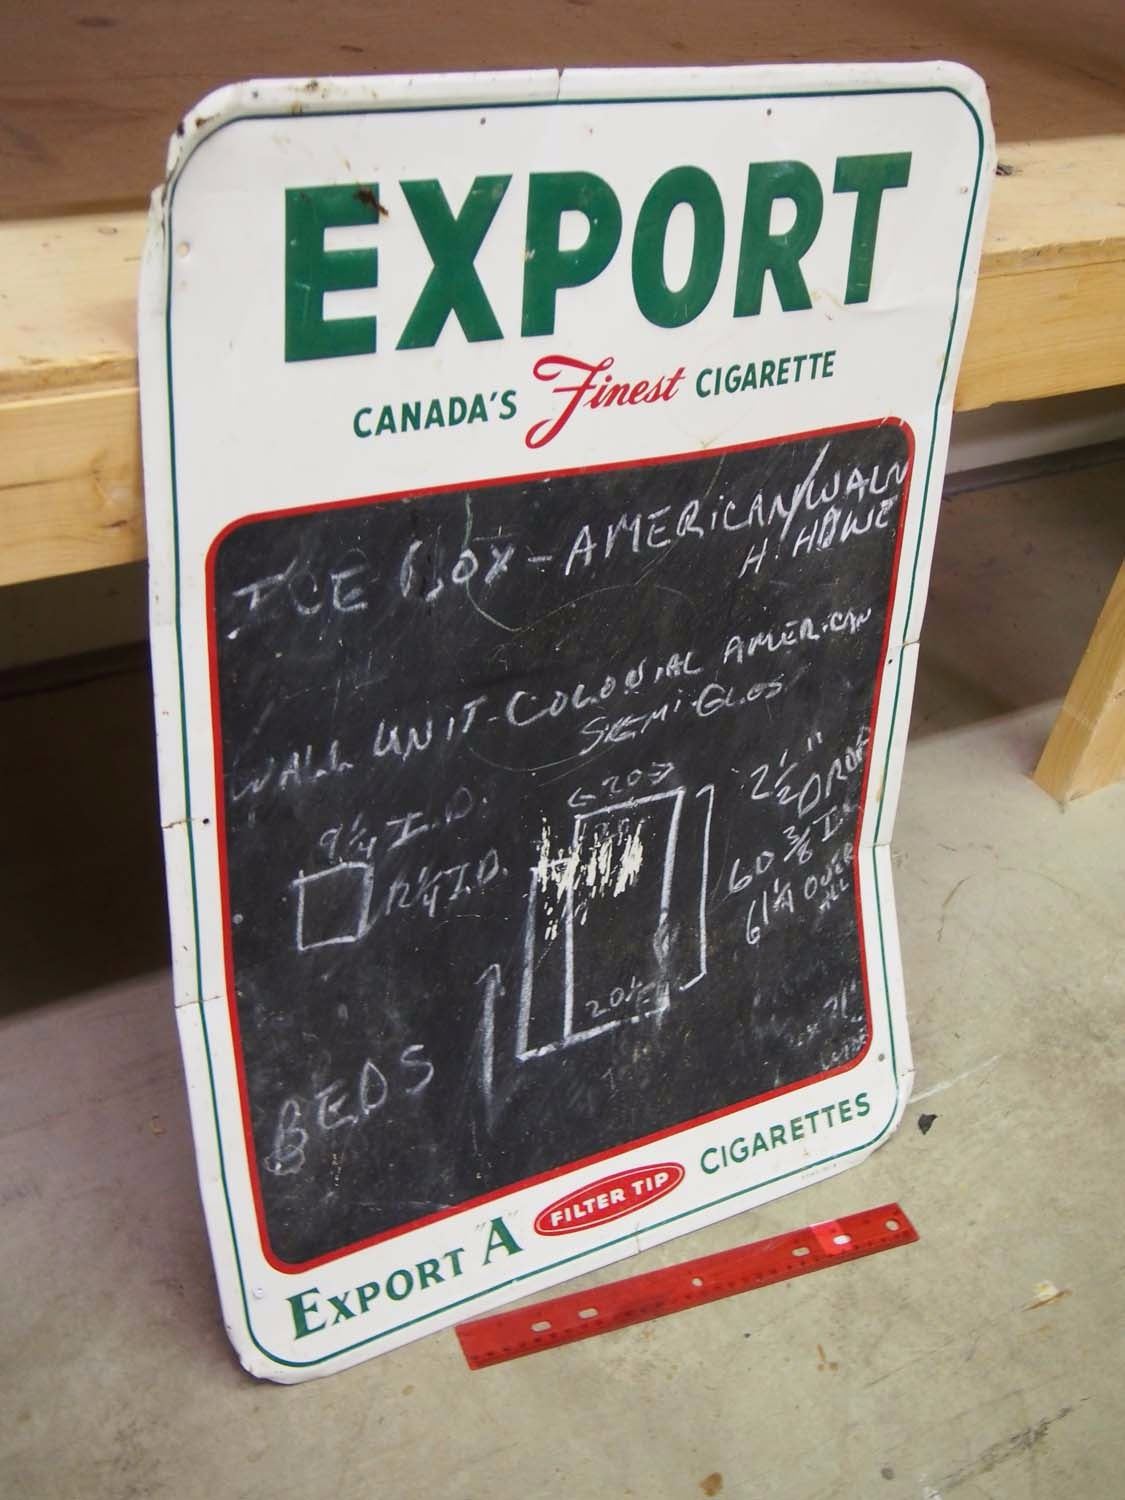 EXPORT
CANADA'S Finest CIGARETTE
ICE BOX - AMERICAN/WALN
WALL UNIT - COLONIAL AMERICAN
SEMI-GLOS
9 1/4 I.D.
12 1/4 I.D.
<20>
2 1/2" DROP
60 3/8 I.
61 1/4 OVER
ALL
20
71"
WIDE
BEDS
EXPORT "A" FILTER TIP CIGARETTES